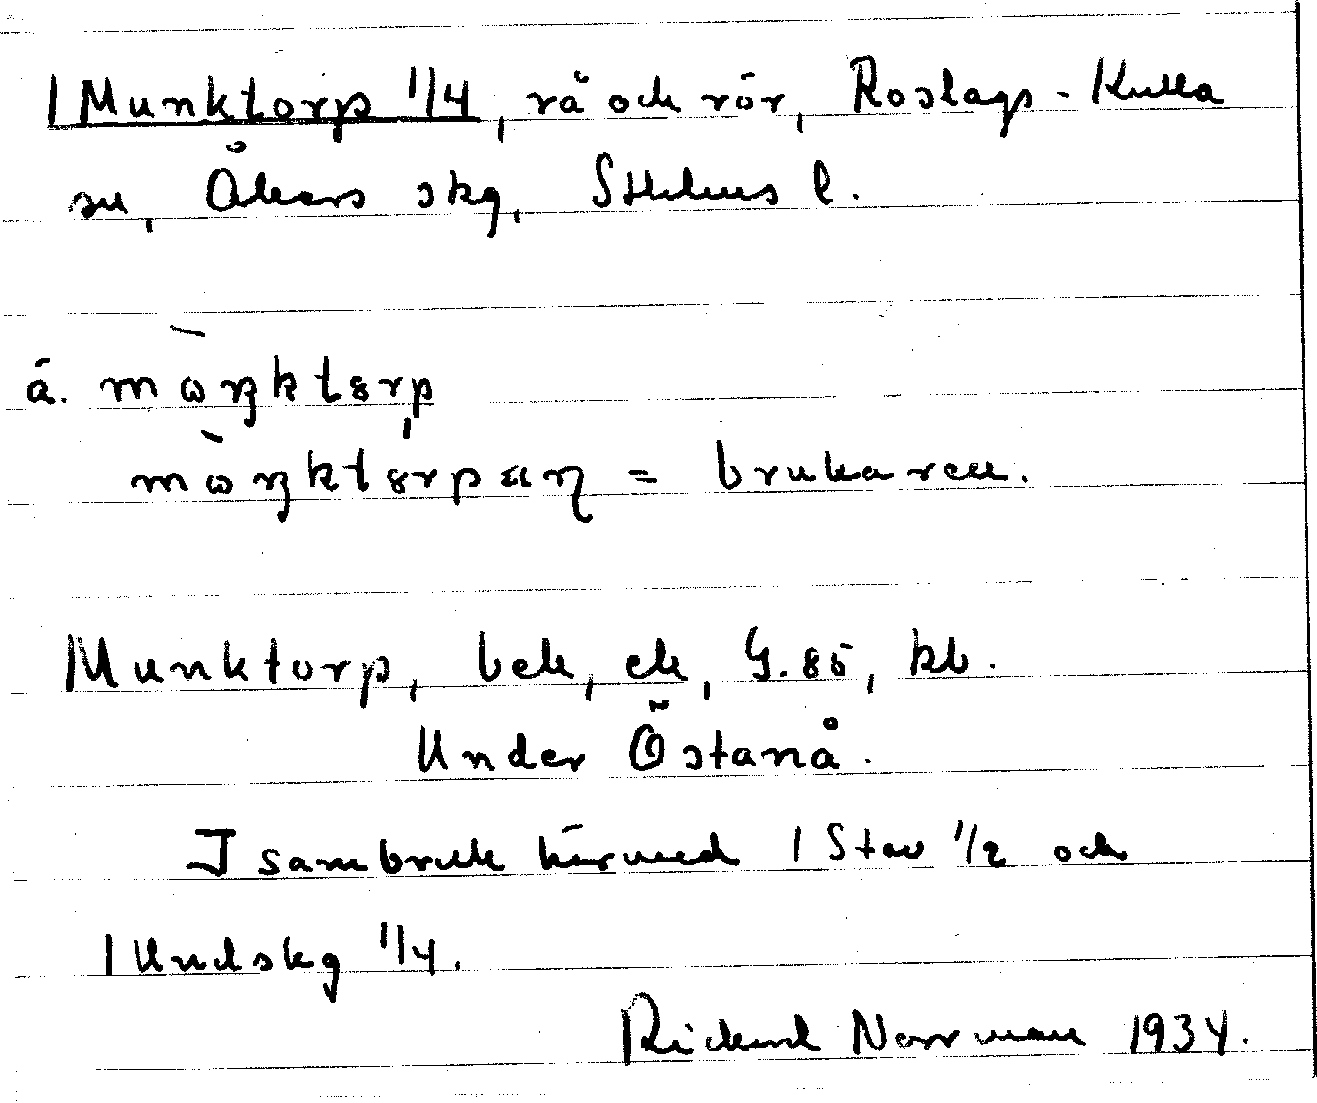 1 Munktorp 1/4, rå och rör, Roslags-Kulla
sn, Åkers skg, Sthlms l.
á. mὼŋktȣrp
mὼŋktȣrpaƞ = brukaren.
Munktorp, bek, ek, G. 85, kb.
Under Östanå.
I sambruk härmed 1 Stav 1/2 och
1 Undskg 1/4.
Rickard Norrman 1934.